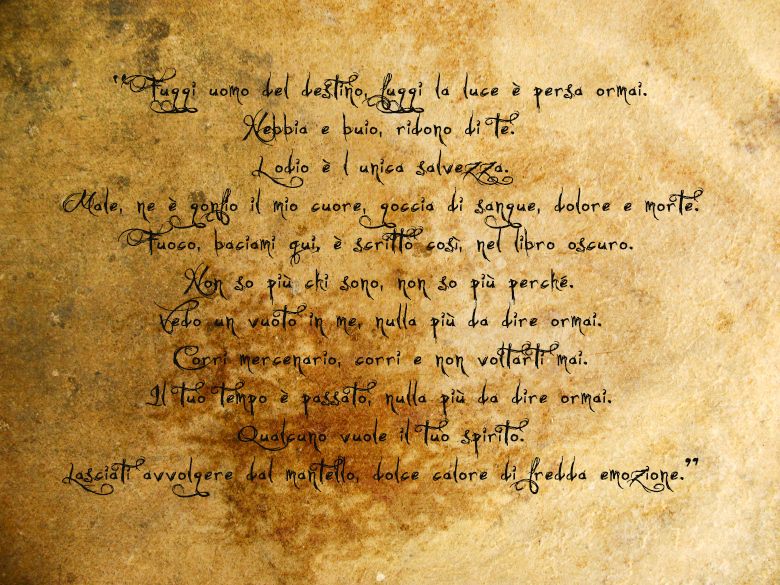 “Fuggi uomo del destino, fuggi la luce è persa ormai.
Nebbia e buio, ridono di te.
Lodio è l unica salvezza.
Male, ne è gonfio il mio cuore, goccia di sangue, dolore e morte.
Fuoco, baciami qui, è scritto così, nel libro oscuro.
Non so più chi sono, non so più perché.
Vedo un vuoto in me, nulla più da dire ormai.
Corri mercenario, corri e non voltarti mai.
Il tuo tempo è passato, nulla più da dire ormai.
Qualcuno vuole il tuo spirito.
Lasciati avvolgere dal mantello, dolce calore di fredda emozione.”